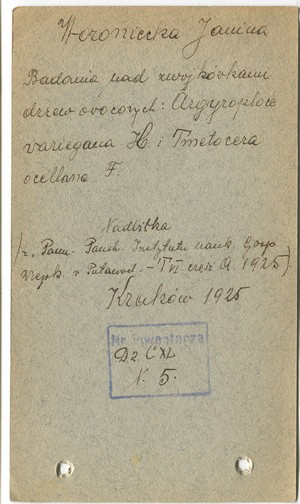 Woroniecka Janina
Badania nad zwójkówkami
drzew owocowych: Argyroploce
variegana H. i Tmetocera
ocellana F.
Nadbitka
(z „Pam. Państ. Instytutu nauk. Gosp.
wiejsk. w Puławach. – T VI część A. 1925).
Kraków 1925
Nr. inwentarza
Dz. CXL
N. 5.